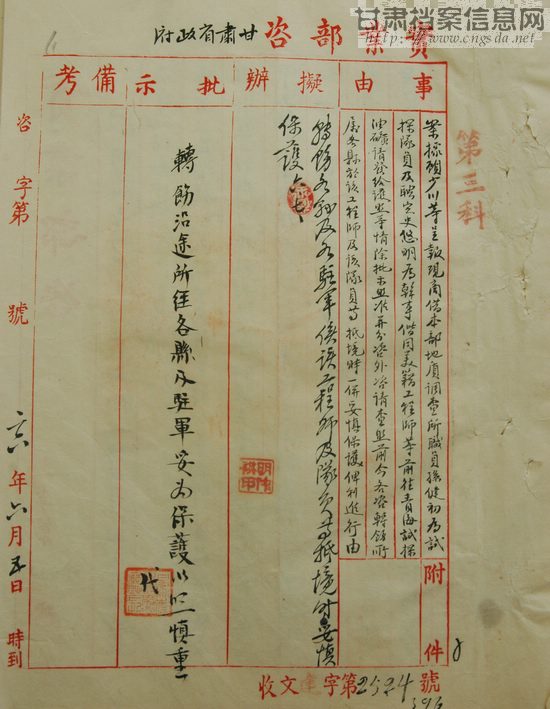 甘肃档案信息网
http://www.cngsda.net
實業部咨甘肅省政府
事由
擬辦
批示
備考
附件
第三科
業據顧少川等呈報現商借本部地質調查所職員孫健初為試
探隊員及聘定史悠明為幹事偕同美籍工程師等前往青海試探
油礦請發給護照等情除批示照准并分咨外咨請查照前今各咨轉飭所
屬各縣於該工程師及該隊員等抵境時一併妥慎保護俾利進行由
轉飭各縣及各駐軍俟該工程師及隊員等抵境時妥慎
保護 六、七、
轉飭沿途所經各縣及駐軍妥為保護以昭慎重
代
咨 字第 號
二六年六月五日 時到
收文建字第2524號